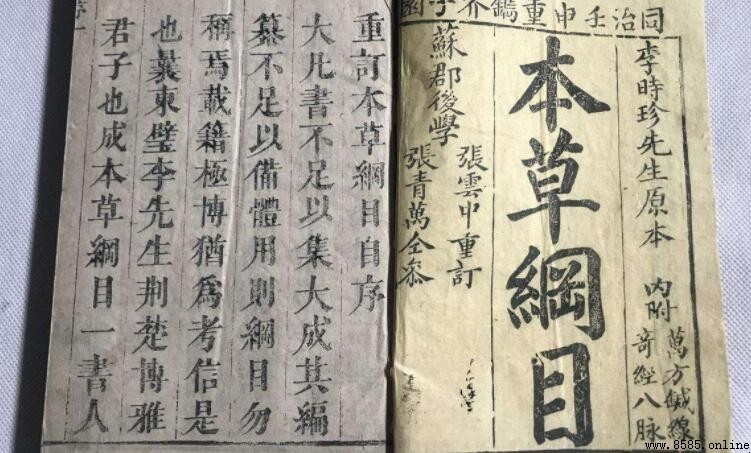 同治壬申重鐫
李時珍先生原本
內附萬方鍼線
奇經八脉
本草綱目
蘇郡後學
張雲中重訂
張青萬仝叅
重訂本草綱目自序
大凡書不足以集大成其編
纂不足以備體用則綱目勿
稱焉載籍極博猶為考信是
也曩東璧李先生荆楚博雅
君子也成本草綱目一書人
www.8585.online